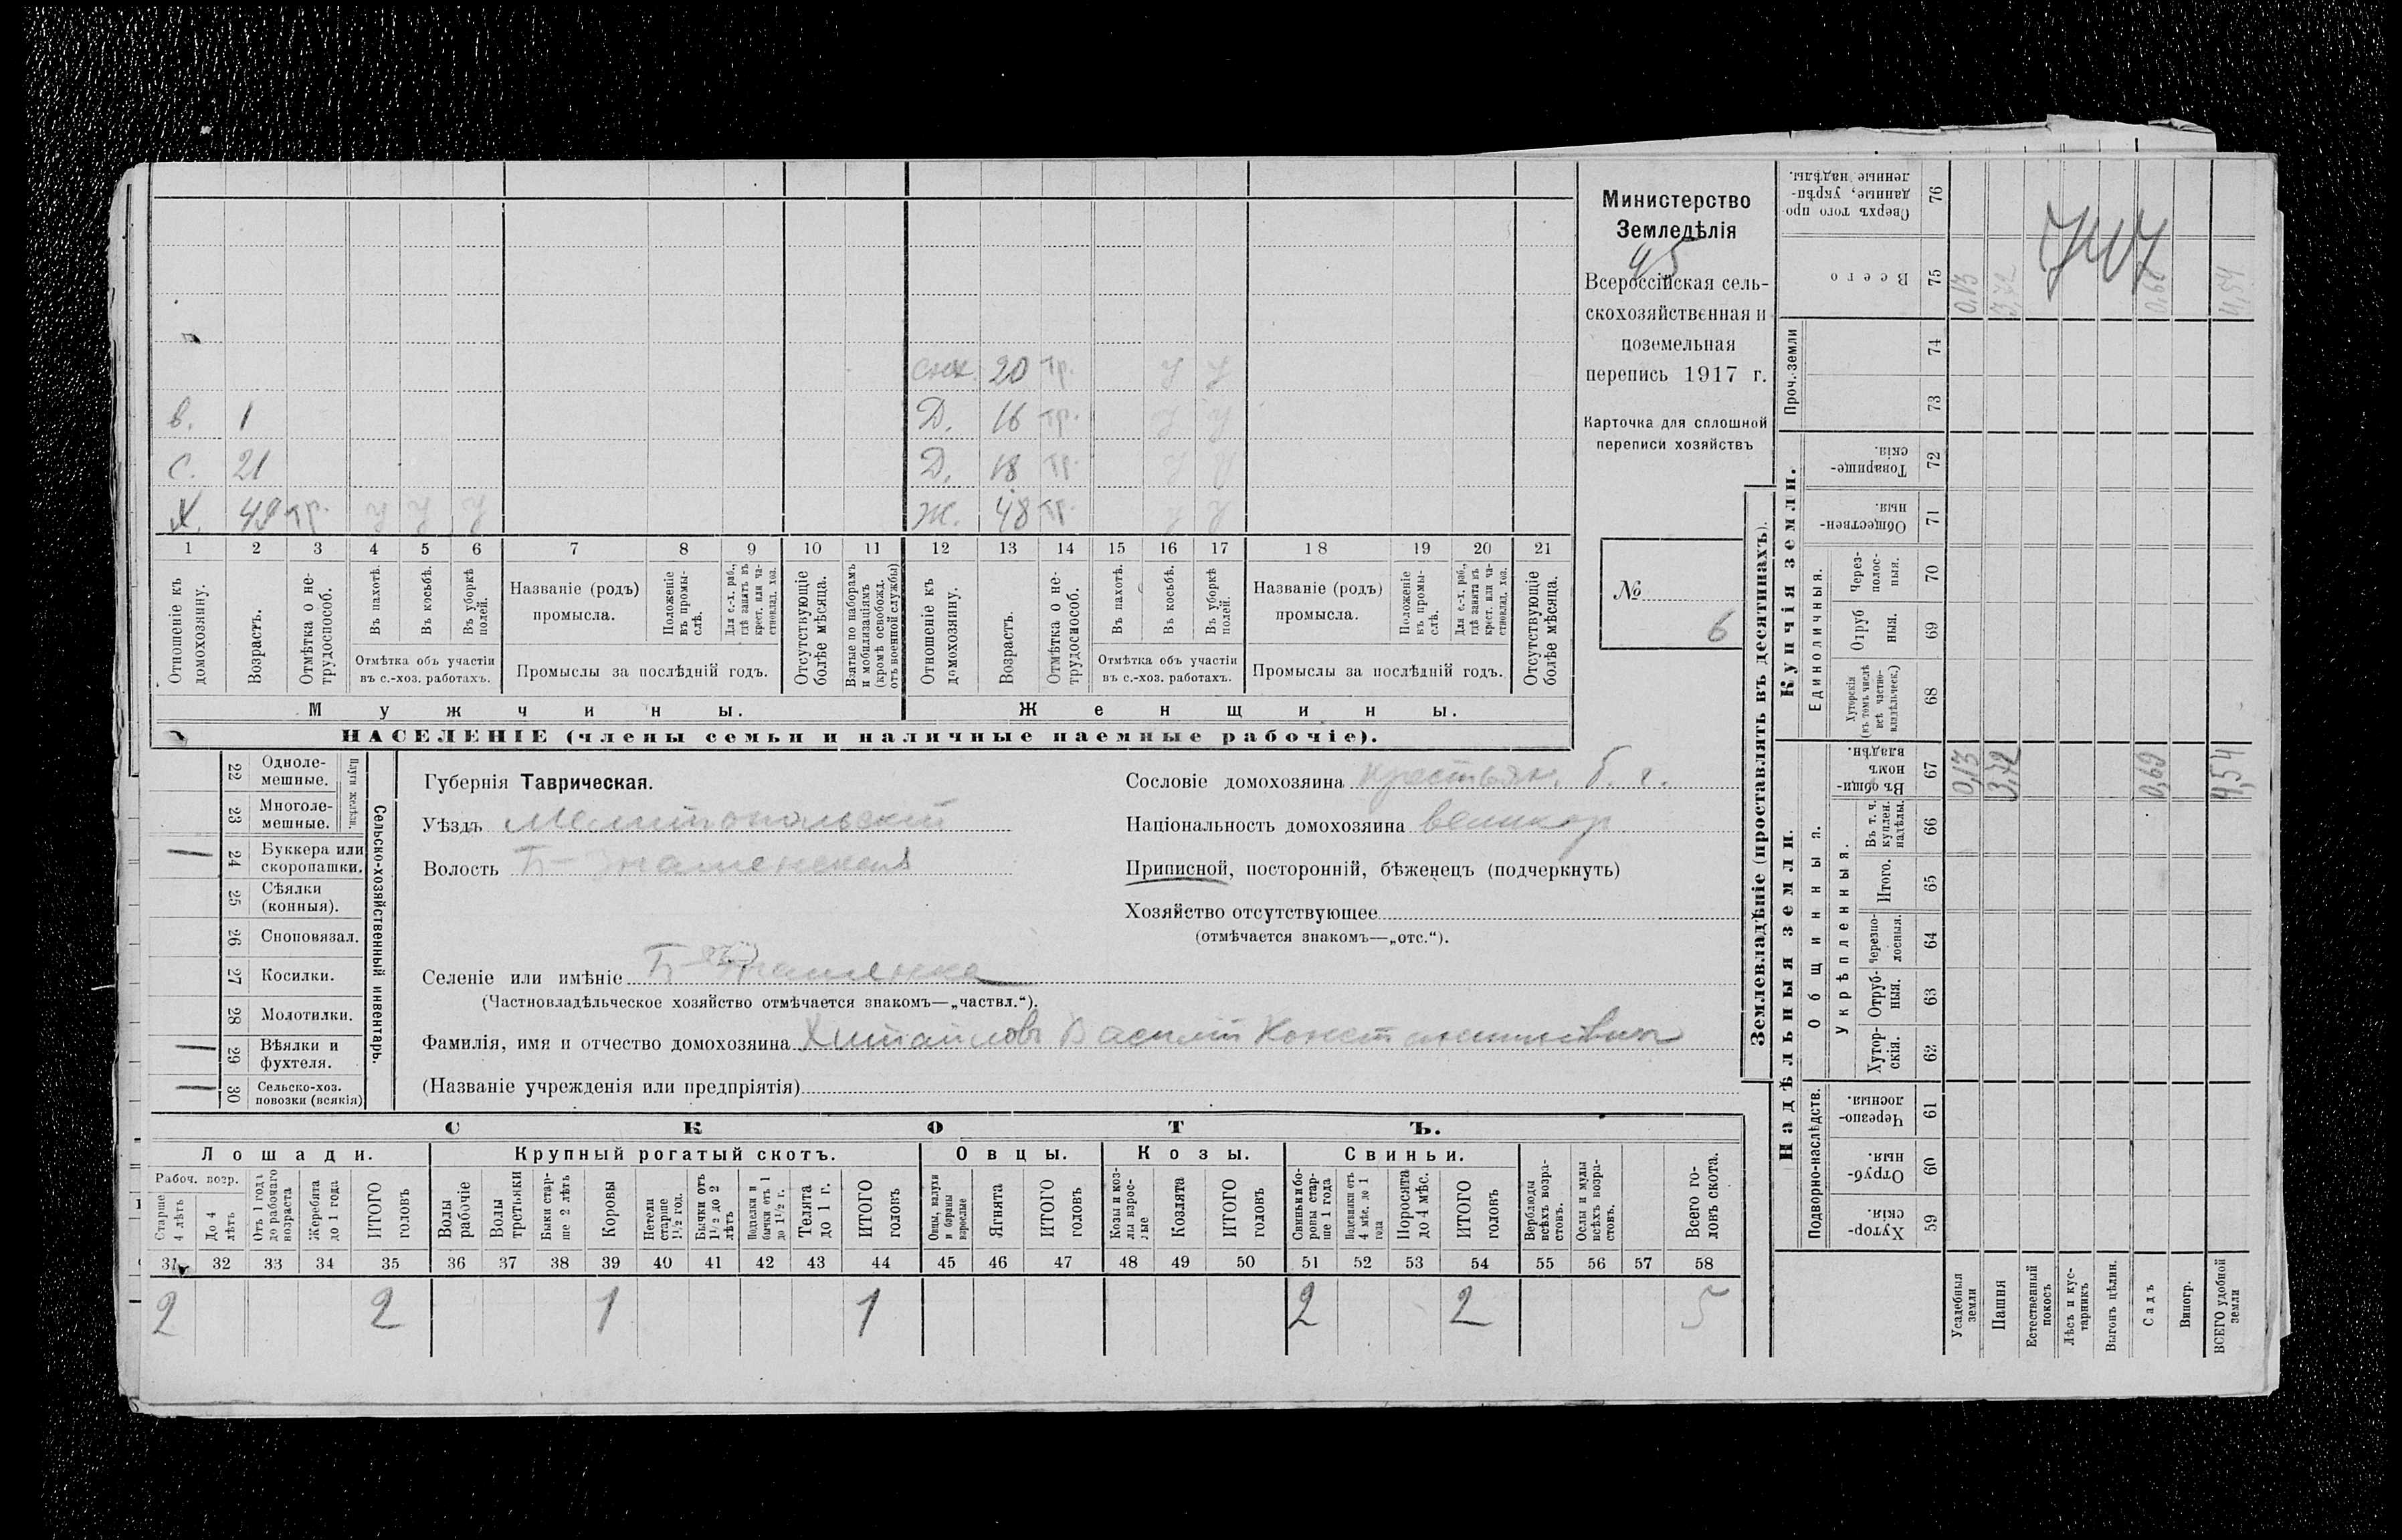 Министерство
Земледѣлія
45
Всероссійская сель-
скохозяйственная и
поземельная
перепись 1917 г.
Карточка для сплошной
переписи хозяйствъ
№
6
снх. 20 тр. у у
в. 1 Д. 16 тр. у у
с. 21 Д. 18 тр. у у
Х. 49 тр. у у у Ж. 48 тр. у у
1 2 3 4 5 6 7 8 9 10 11 12 13 14 15 16 17 18 19 20 21
Отношеніе къ домохозяину.
Возрастъ.
Отмѣтка о не-трудоспособ.
Въ пахотѣ.
Въ косьбѣ.
Въ уборкѣ полей.
Отмѣтка объ участіи
въ с.-хоз. работахъ.
Названіе (родъ)
промысла.
Положеніе въ промы-слѣ.
Для с.-х. раб., гдѣ занятъ въ крест. или ча-стновлад. хоз.
Промыслы за послѣдній годъ.
Отсутствующіе болѣе мѣсяца.
Взятые по наборамъ и мобилизаціямъ (кромѣ освобожд. отъ военной службы)
Отношеніе къ домохозяину.
Возрастъ.
Отмѣтка о не-трудоспособ.
Въ пахотѣ.
Въ косьбѣ.
Въ уборкѣ полей.
Отмѣтка объ участіи
въ с.-хоз. работахъ.
Названіе (родъ)
промысла.
Положеніе въ промы-слѣ.
Для с.-х. раб., гдѣ занята въ крест. или ча-стновлад. хоз.
Промыслы за послѣдній годъ.
Отсутствующіе болѣе мѣсяца.
Мужчины. Женщины.
НАСЕЛЕНІЕ (члены семьи и наличные наемные рабочіе).
Сельско-хозяйственный инвентарь.
Плуги желѣзн.
22 Одноле-мешные.
23 Многоле-мешные.
— 24 Буккера или скоропашки.
25 Сѣялки (конныя).
26 Сноповязал.
27 Косилки.
28 Молотилки.
— 29 Вѣялки и фухтеля.
— 30 Сельско-хоз. повозки (всякія)
Губернія Таврическая.
Уѣздъ Мелитопольскій
Волость Б-Знаменская
Сословіе домохозяина крестьян. б. г.
Національность домохозяина великор
Приписной, посторонній, бѣженецъ (подчеркнуть)
Хозяйство отсутствующее
(отмѣчается знакомъ—„отс.“).
Селеніе или имѣніе Б-Знаменка
(Частновладѣльческое хозяйство отмѣчается знакомъ—„частвл.“).
Фамилія, имя и отчество домохозяина Хитайловъ Василій Константиновичъ
(Названіе учрежденія или предпріятія)
СКОТЪ.
Лошади. Крупный рогатый скотъ. Овцы. Козы. Свиньи.
Рабоч. возр.
Старше 4 лѣтъ
До 4 лѣтъ
Отъ 1 года до рабочаго возраста
Жеребята до 1 года
ИТОГО головъ
Волы рабочіе
Волы третьяки
Быки стар-ше 2 лѣтъ
Коровы
Нетели старше 1½ год.
Бычки отъ 1½ до 2 лѣтъ
Подтелки и бычки отъ 1 до 1½ г.
Телята до 1 г.
ИТОГО головъ
Овцы, валухи и бараны взрослые
Ягнята
ИТОГО головъ
Козы и коз-лы взрос-лые
Козлята
ИТОГО головъ
Свиньи и бо-ровы стар-ше 1 года
Подсвинки отъ 4 мѣс. до 1 года
Поросята до 4 мѣс.
ИТОГО головъ
Верблюды всѣхъ возра-стовъ.
Ослы и мулы всѣхъ возра-стовъ.
Всего го-ловъ скота.
31 32 33 34 35 36 37 38 39 40 41 42 43 44 45 46 47 48 49 50 51 52 53 54 55 56 57 58
2 2 1 1 2 2 5
Землевладѣніе (проставлять въ десятинахъ).
Надѣльныя земли. Купчія земли.
Сверхъ того про-данные, укрѣп-ленные надѣлы. 76
Всего 75 0,13 3,72 0,69 4,54
Проч. земли 74
73
Товарище-скія. 72
Обществен-ныя. 71
Единоличныя.
Через-полос-ныя. 70
Отруб-ныя. 69
Хуторскія (въ томъ числѣ всѣ частно-владѣльческ.) 68
Общинныя.
Въ общин-номъ владѣн. 67 0,13 3,72 0,69 4,54
Укрѣпленныя.
Въ т. ч. куплен. надѣлы. 66
Итого. 65
Черезпо-лосныя. 64
Отруб-ныя. 63
Хутор-скія. 62
Подворно-наслѣдств.
Черезпо-лосныя. 61
Отруб-ныя. 60
Хутор-скія. 59
Усадебныя земли
Пашня
Естественный покосъ
Лѣсъ и кус-тарникъ
Выгонъ цѣлин.
Садъ
Виногр.
ВСЕГО удобной земли